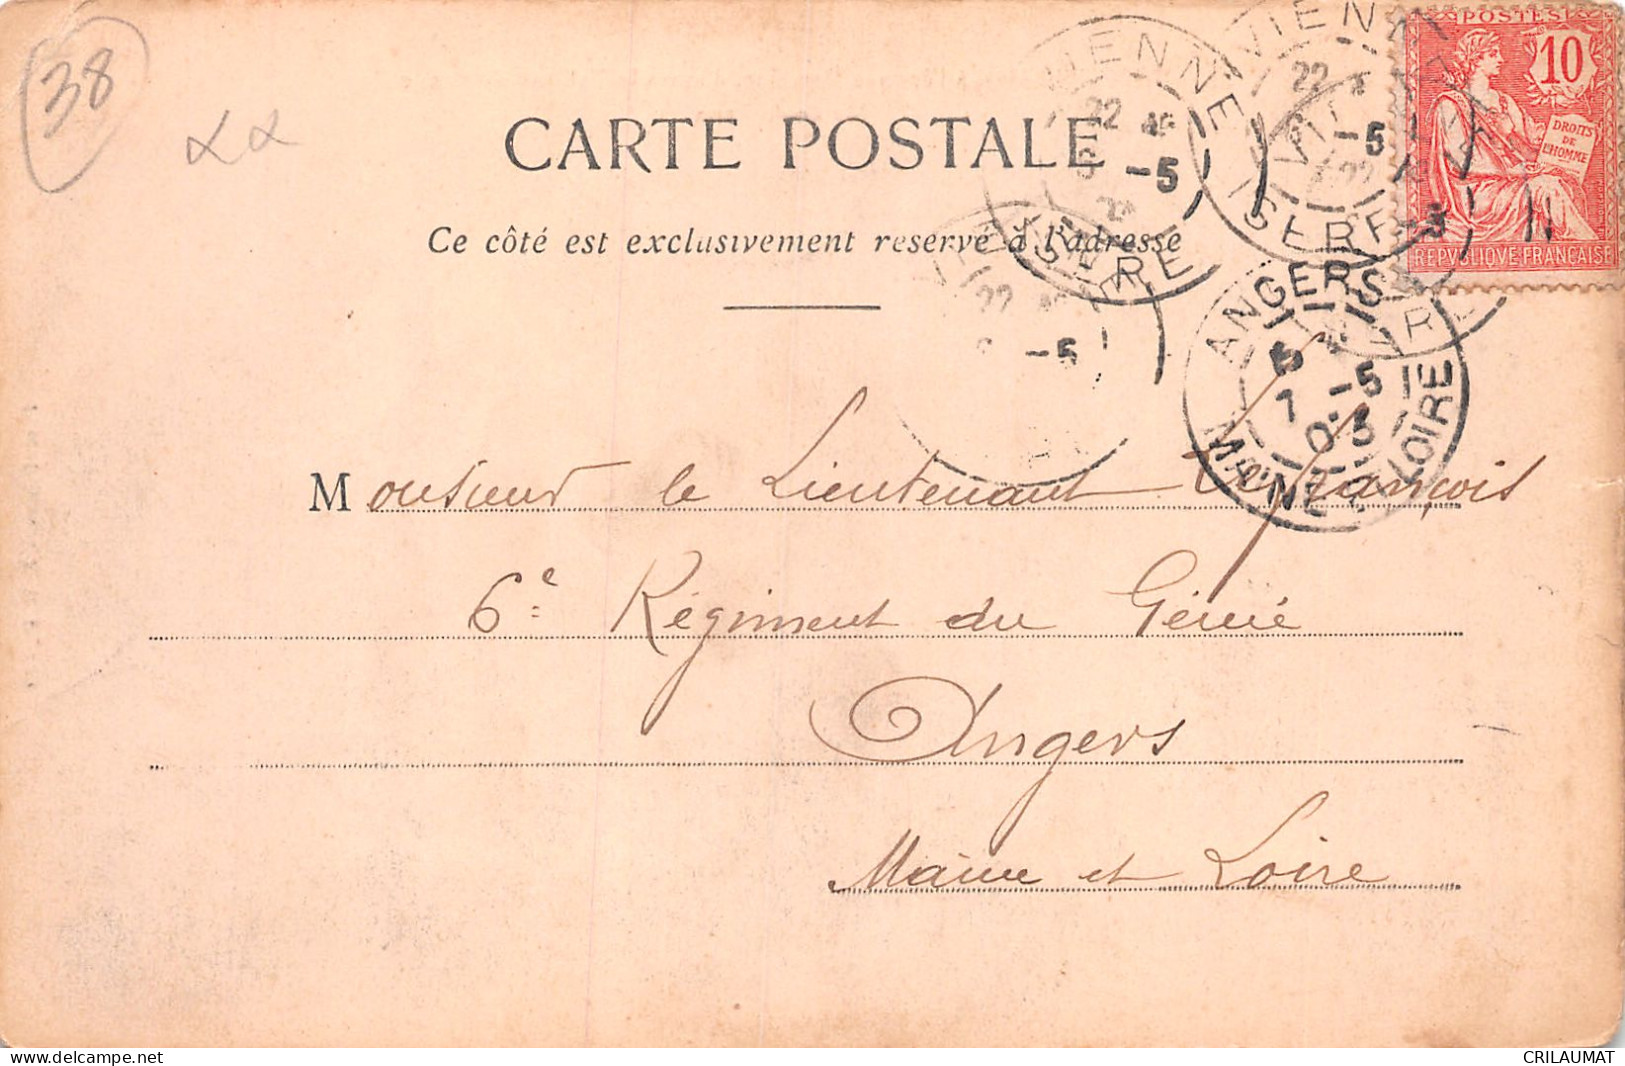 38
POSTES
10
DROITS
DE
L'HOMME
REPVBLIQVE FRANÇAISE
VIENNE
22
-5
ISERE
VIENNE
22
-5
ISERE
22
-5
ANGERS
5
7 -5
03
MAINE & LOIRE
CARTE POSTALE
Ce côté est exclusivement reservé à l'adresse
Monsieur le Lieutenant François
6e Régiment du Génie
Angers
Maine et Loire
delcampe.net
CRILAUMAT